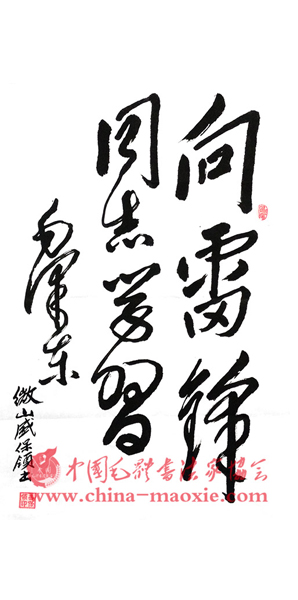 向雷锋
同志学习
毛泽东
微山威保领书
中国毛体书法家协会
www.china-maoxie.com